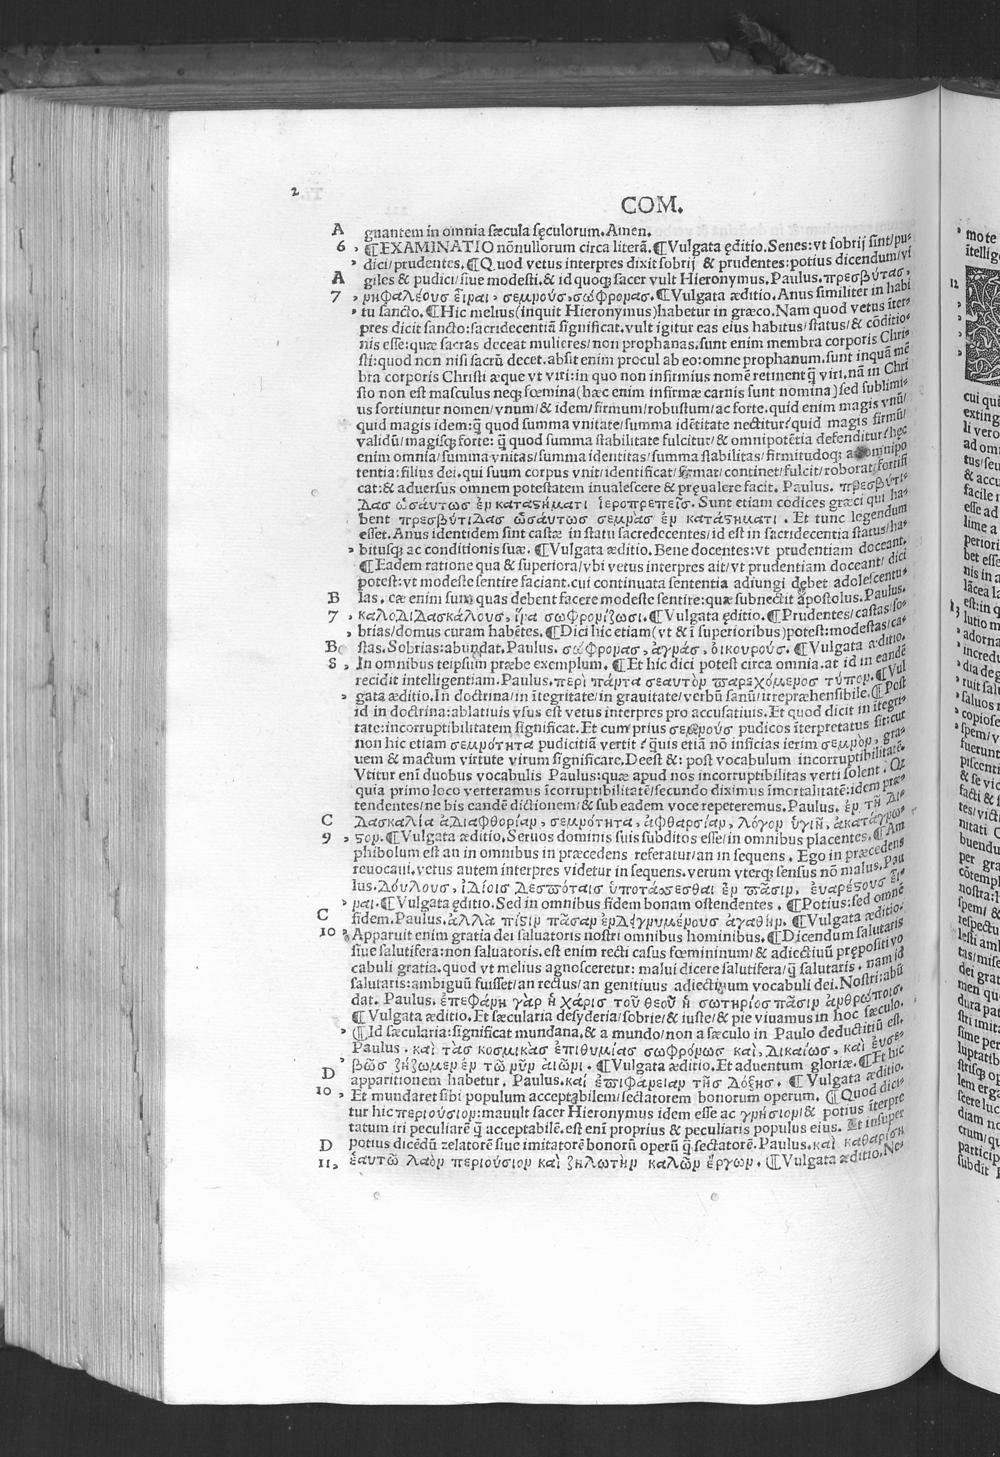 2
COM.
A gnantem in omnia sæcula sęculorum. Amen.
6 , ¶EXAMINATIO nōnullorum circa literā. ¶Vulgata ęditio. Senes: vt sobrij sint/pu-
, dici/prudentes. ¶Quod vetus interpres dixit sobrij & prudentes: potius dicendum/vi
A giles & pudici/siue modesti. & id quoqꝫ sacer vult Hieronymus. Paulus. πρεσβύτας,
7 , νηφαλέους εἶναι, σεμνούς, σώφρονας. ¶Vulgata æditio. Anus similiter in habi
, tu sancto. ¶Hic melius (inquit Hieronymus) habetur in græco. Nam quod vetus īter-
pres dicit sancto: sacridecentiā significat. vult igitur eas eius habitus/status/& cōditio-
nis esse: quæ sacras deceat mulieres/non prophanas. sunt enim membra corporis Chri-
sti: quod non nisi sacrū decet. absit enim procul ab eo: omne prophanum. sunt inquā mē
bra corporis Christi æque vt viri: in quo non infirmius nomē retinent q̄ viri. nā in Chri
sto non est masculus neqꝫ fœmina (hæc enim infirmæ carnis sunt nomina) sed sublimi-
us sortiuntur nomen/vnum/& idem/firmum/robustum/ac forte. quid enim magis vnū/
quid magis idem: q̄ quod summa vnitate/summa idētitate nectitur? quid magis firmū/
validū/magisqꝫ forte: q̄ quod summa stabilitate fulcitur/& omnipotētia defenditur? hęc
enim omnia/summa vnitas/summa identitas/summa stabilitas/firmitudoqꝫ a omnipo
tentia: filius dei. qui suum corpus vnit/identificat/firmat/continet/fulcit/roborat/fortifi
cat: & aduersus omnem potestatem inualescere & pręualere facit. Paulus. πρεσβύτι-
δας ὡσαύτως ἐν καταστήματι ἱεροπρεπεῖς. Sunt etiam codices græci qui ha-
bent πρεσβύτιδας ὡσαύτως σεμνὰς ἐν κατάστηματι. Et tunc legendum
esset. Anus identidem sint castæ in statu sacredecentes/id est in sacridecentia status/ha-
, bitusqꝫ ac conditionis suæ. ¶Vulgata æditio. Bene docentes: vt prudentiam doceant.
¶Eadem ratione qua & superiora/vbi vetus interpres ait/vt prudentiam doceant/dici
potest: vt modeste sentire faciant. cui continuata sententia adiungi debet adolescentu-
B las. eæ enim sunt quas debent facere modeste sentire: quæ subnectit apostolus. Paulus.
7 , καλοδιδασκάλους, ἵνα σωφρονίζωσι. ¶Vulgata ęditio. ¶Prudentes/castas/so-
, brias/domus curam habētes. ¶Dici hic etiam (vt & ī superioribus) potest: modestas/ca-
B stas. Sobrias: abundat. Paulus. σώφρονας, ἁγνάς, οἰκουρούς. ¶Vulgata æditio.
8 , In omnibus teipsum præbe exemplum. ¶Et hic dici potest circa omnia. at id in eandē
recidit intelligentiam. Paulus. περὶ πάντα σεαυτὸν παρεχόμενος τύπον. ¶Vul
, gata æditio. In doctrina/in ītegritate/in grauitate/verbū sanū/irrepræhensibile. ¶Post
id in doctrina: ablatiuis vsus est vetus interpres pro accusatiuis. Et quod dicit in ītegri-
tate: incorruptibilitatem significat. Et cum prius σεμνοὺς pudicos īterpretatus sit: cur
non hic etiam σεμνότητα pudicitiā vertit? q̄uis etiā nō inficias ierim σεμνὸν, gra-
uem & mactum virtute virum significare. Deest &: post vocabulum incorruptibilitatē.
Vtitur enī duobus vocabulis Paulus: quæ apud nos incorruptibilitas verti solent. Qꝫ
quia primo loco verteramus īcorruptibilitatē/secundo diximus īmortalitatē: idem præ-
tendentes/ne bis eandē dictionem/& sub eadem voce repeteremus. Paulus. ἐν τῇ δι-
C δασκαλία ἀδιαφθορίαν, σεμνότητα, ἀφθαρσίαν, λόγον ὑγιῆ, ἀκατάγνω-
9 , στον. ¶Vulgata æditio. Seruos dominis suis subditos esse/in omnibus placentes. ¶Am
phibolum est an in omnibus in præcedens referatur/an in sequens. Ego in præcedens
reuocaui. vetus autem interpres videtur in sequens. verum vterqꝫ sensus nō malus. Pau
lus. δούλους, ἰδίοις δεσπόταις ὑποτάσσεσθαι ἐν πᾶσιν, ἐυαρέστους εἶ-
, ναι. ¶Vulgata ęditio. Sed in omnibus fidem bonam ostendentes. ¶Potius: sed omnē
C fidem. Paulus. ἀλλὰ πίστιν πᾶσαν ἐνδεικνυμένους ἀγαθὴν. ¶Vulgata æditio.
10 , Apparuit enim gratia dei saluatoris nostri omnibus hominibus. ¶Dicendum salutaris
siue salutifera: non saluatoris. est enim recti casus fœmininum/& adiectiuū prępositiuo
cabuli gratia. quod vt melius agnosceretur: malui dicere salutifera/q̄ salutaris. nam id
salutaris: ambiguū fuisset/an rectus/an genitiuus adiectiuum vocabuli dei. Nostri: abū
dat. Paulus. ἐπεφάνη γὰρ ἡ χάρις τοῦ θεοῦ ἡ σωτήριος πᾶσιν ἀνθρώποις.
¶Vulgata æditio. Et sæcularia desyderia/sobrie/& iuste/& pie viuamus in hoc sæculo.
, ¶Id sæcularia: significat mundana. & a mundo/non a sæculo in Paulo deductitiū est.
Paulus. καὶ τὰς κοσμικὰς ἐπιθυμίας σωφρόνως καὶ, δικαίως, καὶ ἐυσε-
, βῶς ζήζωμεν ἐν τῷ νῦν αἰῶνι. ¶Vulgata æditio. Et aduentum gloriæ. ¶Et hic
D apparitionem habetur. Paulus. καὶ ἐπιφάνειαν τῆς δόξης. ¶Vulgata æditio.
10 , Et mundaret sibi populum acceptabilem/sectatorem bonorum operum. ¶Quod dici-
tur hic περιούσιον: mauult sacer Hieronymus idem esse ac γνήσιον/& potius īterpre
tatum iri peculiarē q̄ acceptabilē. est enī proprius & peculiaris populus eius. Et insuper
D potius dicēdū zelatorē siue imitatorē bonorū operū q̄ sectatorē. Paulus. καὶ καθαρίσῃ
11, ἑαυτῷ λαὸν περιούσιον καὶ ζηλωτὴν καλῶν ἔργων. ¶Vulgata æditio. Ne-
mo te
ītellig
12
cui qui
exting
li vero
ad om
tus/seu
& accu
facile r
esse ad
lime a
periori
bet esse
nis in a
lācea la
13 est: in q
lutio m
, adorna
, incredu
, dia de g
, ruit salu
, saluos r
, copiose
, spem/v
fuerunt
piscenti
& se vic
facti & s
tes/victi
nitati C
buendu
per gra
cōtempl
nostra: l
spem/&
respectu
lesti am
tas/mise
dei grat
men qu
dura pat
stri imit
sime per
luptatib
strisqꝫ op
lem erga
scere luc
diam no
crum/qu
particip
subdit p